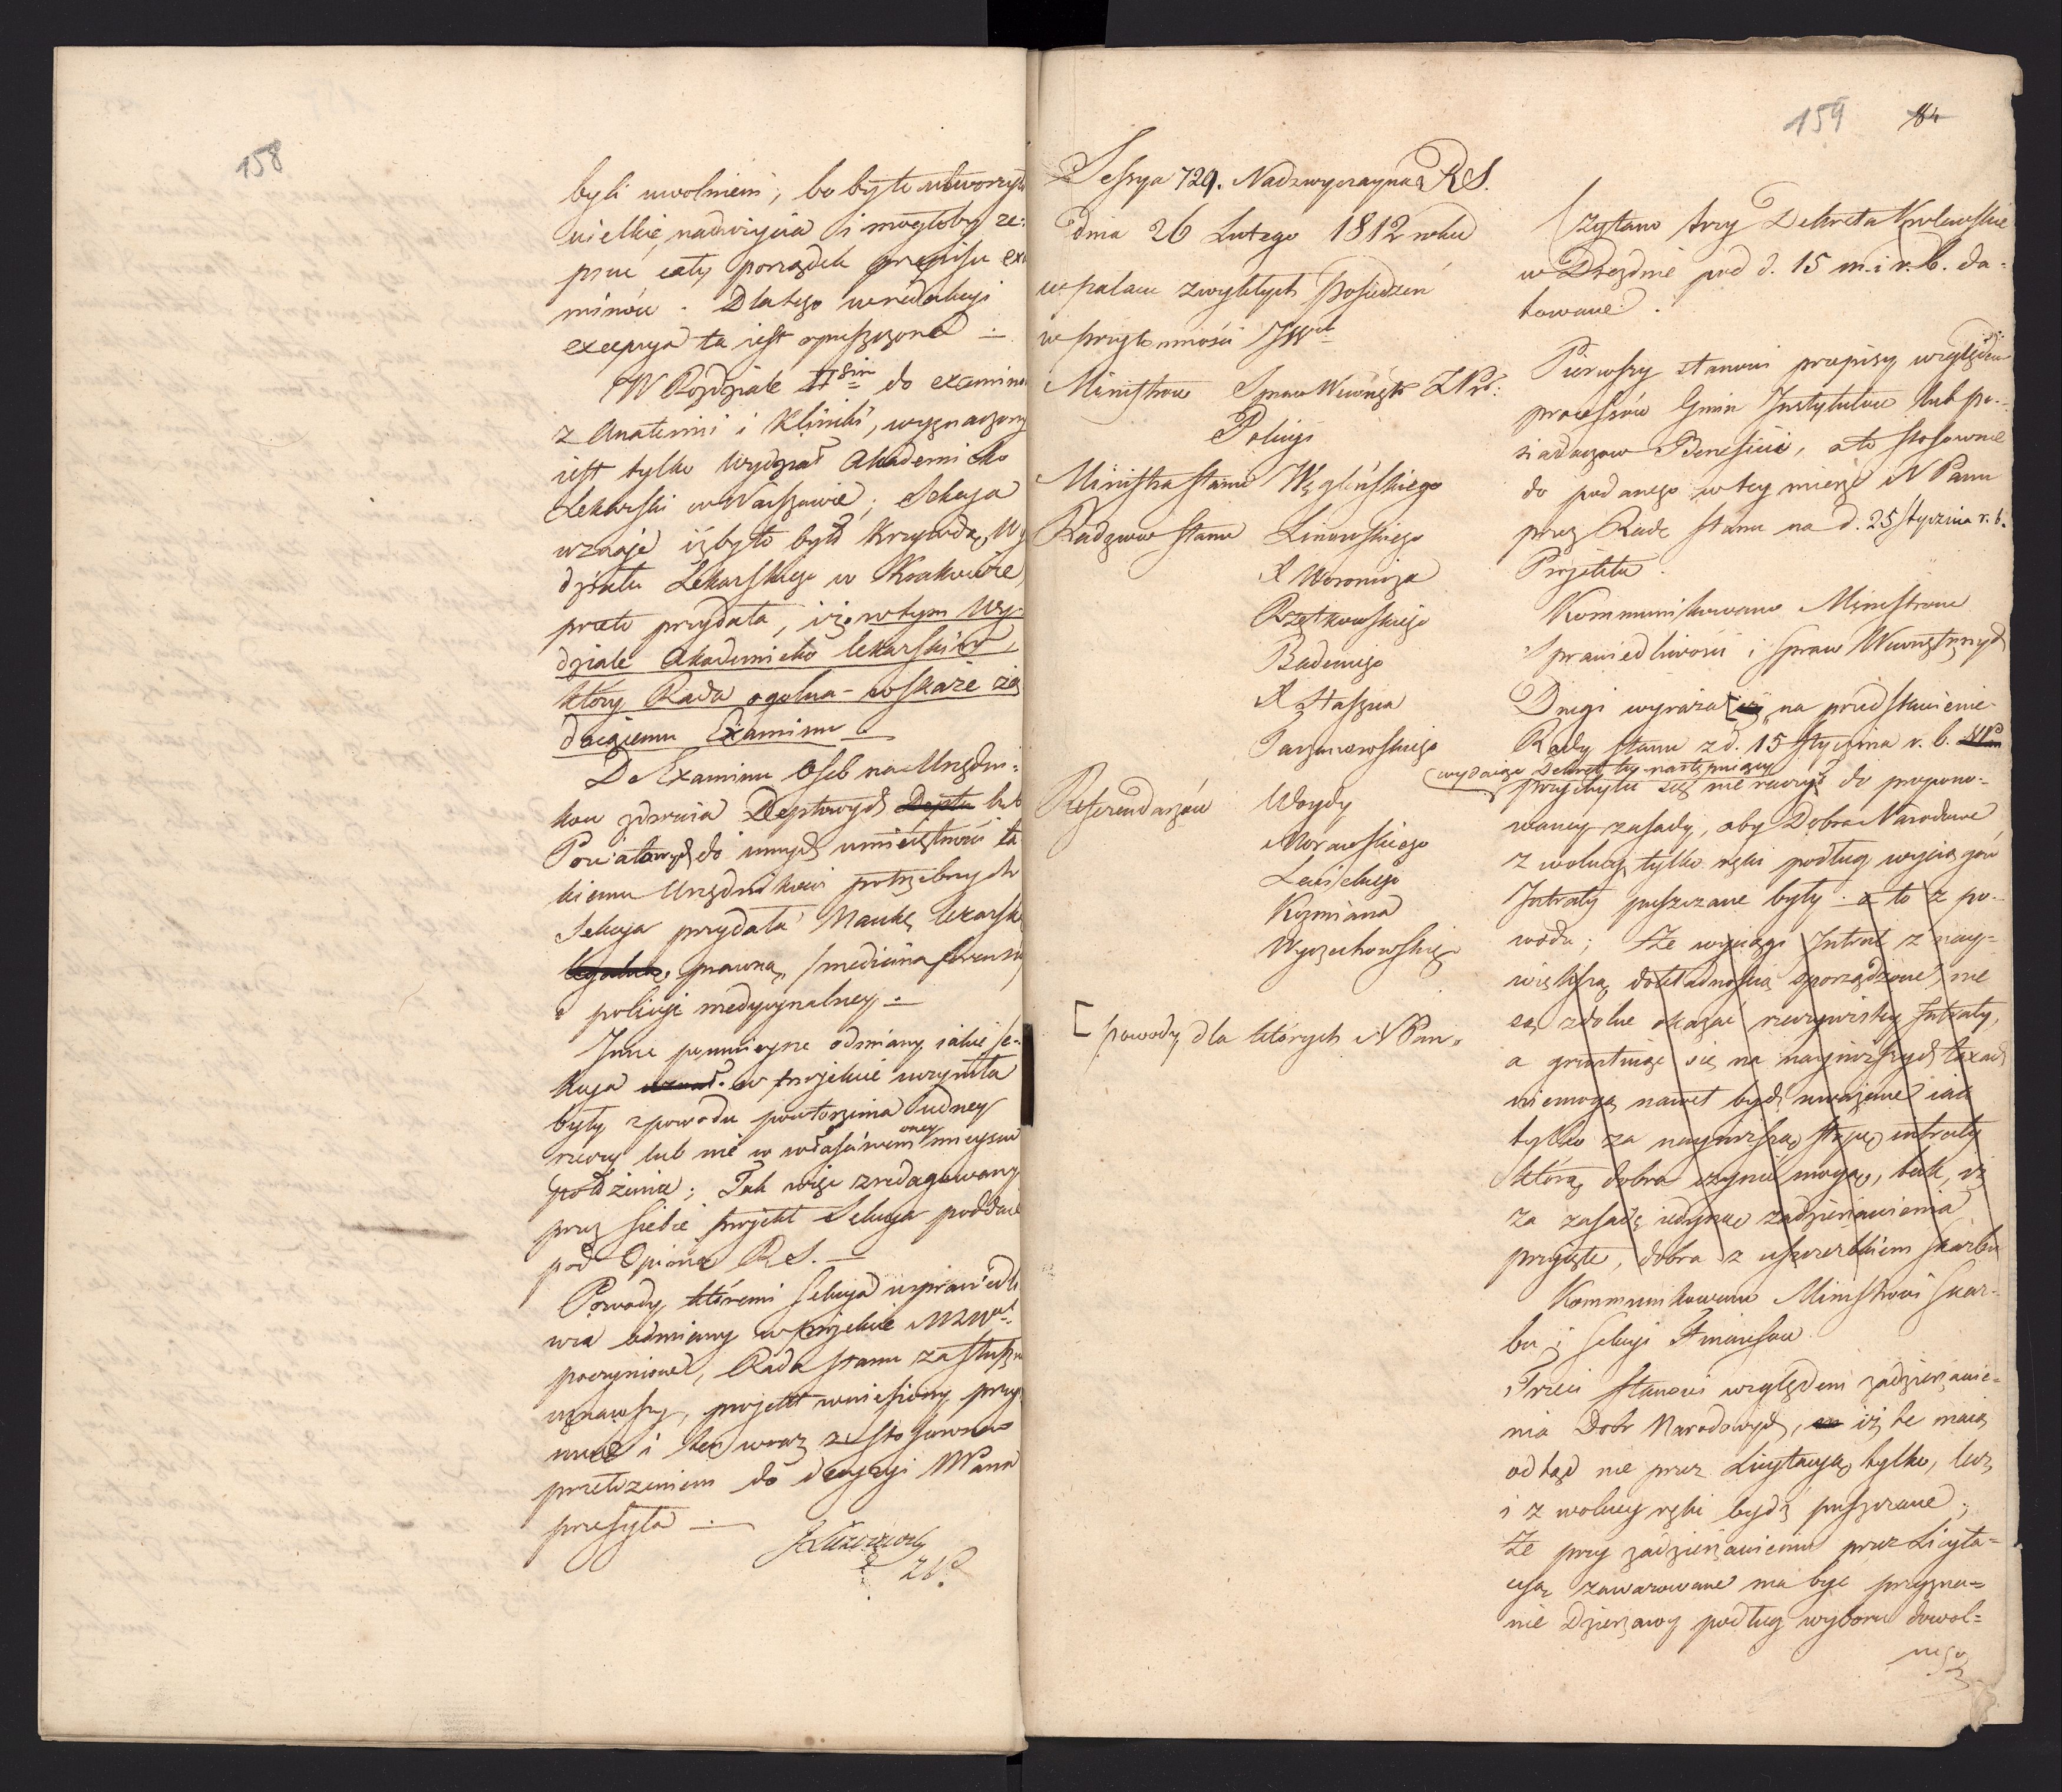 158
byli uwolnieni, bo było utworzyło
wielkie nadużycia i mogłoby ze=
psuć cały porządek przepisu exa
minów. Dlatego w redakcyi
excepcya ta iest opuszczona —
W Rozdziale II do examinu
z Anatomii i Kliniki, wyznaczony
iest tylko Wydział Akademicko
Lekarski w Warszawie; Sekcya
uznaje iż było byto krzywdą, Wy
działu Lekarskiego w Krakowie
przeto przydała, iż w tym Wy=
dziale Akademicko lekarskim,
który Rada ogólna wskaże żą
daiącemu Examinu —
Do Examinu Osob na Urzędni=
kow zdrowia Deptowych Deptu lub
Powiatowych do innych umieiętności ta
kiemu Urzędnikowi potrzebnych
Sekcya przydała Naukę lekarską
legalną, prawną, /medicina forensis/
i policyi medycynalney —
Inne pomnieysze odmiany iakie Se=
kcya w projekcie uczyniła
były z powodu powtorzenia iedney
rzeczy lub nie w właściwem oney mieyscu
położenia; Tak więc zredagowany
przez siebie projekt Sekcya poddaie
pod Opinią R S. —
Powody, któremi Sekcya usprawiedli
wia odmiany w projekcie
poczynione, Rada Stanu za słuszne
uznawszy, projekt wniesiony przy
muie i ten wraz z stosownem
przełożeniem do decyzyi N Pana
przesyła —
159 84
Sessya 729. Nadzwyczayna R S.
dnia 26 Lutego 1812 roku
w pałacu zwykłych Posiedzeń
w przytomności JW
Ministrow Spraw Wewnętr
Policyi
Ministra Stanu Węgleńskiego
Radzcow Stanu Linowskiego
X Woronicza
Rzętkowskiego
Badeniego
X Staszica
Tarzanowskiego
Referendarzów Woydy
Morawskiego
Lanckiego
Kozmiana
Wyczechowskiego
[ powody dla których N Pan
Czytano trzy Dekreta Krolewskie
w Dreznie pod d. 15 m. i r. b. da=
towane.
Pierwszy stanowi przepisy względem
processów Gmin Instytutow lub po=
siadaczow Beneficii, a to stosownie
do podanego w tey mierze N Panu
przez Radę Stanu na d. 25 Stycznia r. b.
Projektu.
Kommunikowano Ministrom
Sprawiedliwości i Spraw Wewnętrznych
Drugi wyraża [iż na przedstawienie
Rady Stanu z d. 15 Stycznia r. b. N Pan
wydaiąc Dekret ten następniący
przychylić się nie raczył do propono=
waney zasady, aby Dobra Narodowe
z wolney tylko ręki podług wyciągow
Intraty puszczane były. a to z po=
wodu; że wyciągi Intrat z nay=
większą dokładnością sporządzone, nie
są zdolne okazać rzeczywistey Intraty,
a gruntuiąc się na nayniższych taxach
niemogą nawet bydź uważane iak
tylko za nayniższą stopę intraty
którą dobra czynić mogą, tak, iż
za zasadę iedynie zadzierżawienia
przyięte, dobra z uszczerbkiem Skarbu
Kommunikowano Ministrowi Skar=
bu i Sekcyi Finansow.
Trzeci stanowi względem zadzierżawie=
nia Dobr Narodowych, iż te maią
odtąd nie przez Licytacyą tylko, lecz
i z wolney ręki bydź puszczane;
Że przy zadzierżawieniu przez Licyta=
cyą zawarowane ma być przyzna=
nie Dzierżawy podług wyboru dowol=
nego